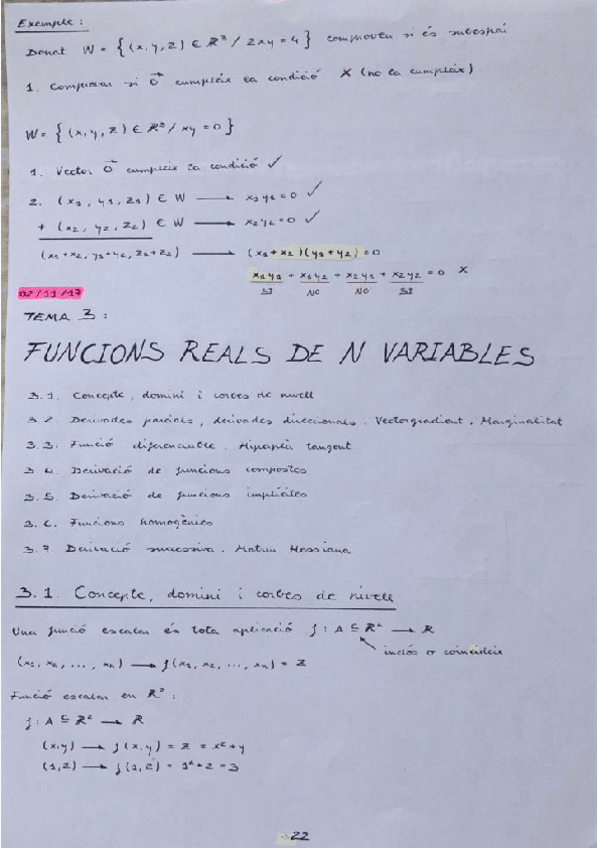 Exemple:
Donat W = { (x, y, z) ∈ R³ / 2xy = 4 } comproveu si és subespai
1. Comprovar si 0⃗ compleix la condició × (no la compleix)
W = { (x, y, z) ∈ R³ / xy = 0 }
1. Vector 0⃗ compleix la condició ✓
2. (x₁, y₁, z₁) ∈ W → x₁y₁ = 0 ✓
+ (x₂, y₂, z₂) ∈ W → x₂y₂ = 0 ✓
(x₁+x₂, y₁+y₂, z₁+z₂) → (x₁+x₂)(y₁+y₂) = 0
x₁y₁ + x₁y₂ + x₂y₁ + x₂y₂ = 0 ×
SI NO NO SI
02/11/17
TEMA 3:
FUNCIONS REALS DE N VARIABLES
3.1. Concepte, domini i corbes de nivell
3.2. Derivades parcials, derivades direccionals. Vector gradient. Marginalitat
3.3. Funció diferenciable. Hiperplà tangent
3.4. Derivació de funcions compostes
3.5. Derivació de funcions implícites
3.6. Funcions homogènies
3.7. Derivació successiva. Matriu Hessiana
3.1. Concepte, domini i corbes de nivell
Una funció escalar és tota aplicació f: A ⊆ R² → R
inclòs or coincideix
(x₁, x₂, ..., xₙ) → f(x₁, x₂, ..., xₙ) = z
Funció escalar en R²:
f: A ⊆ R² → R
(x,y) → f(x,y) = z = x² + y
(1,2) → f(1,2) = 1² + 2 = 3
22